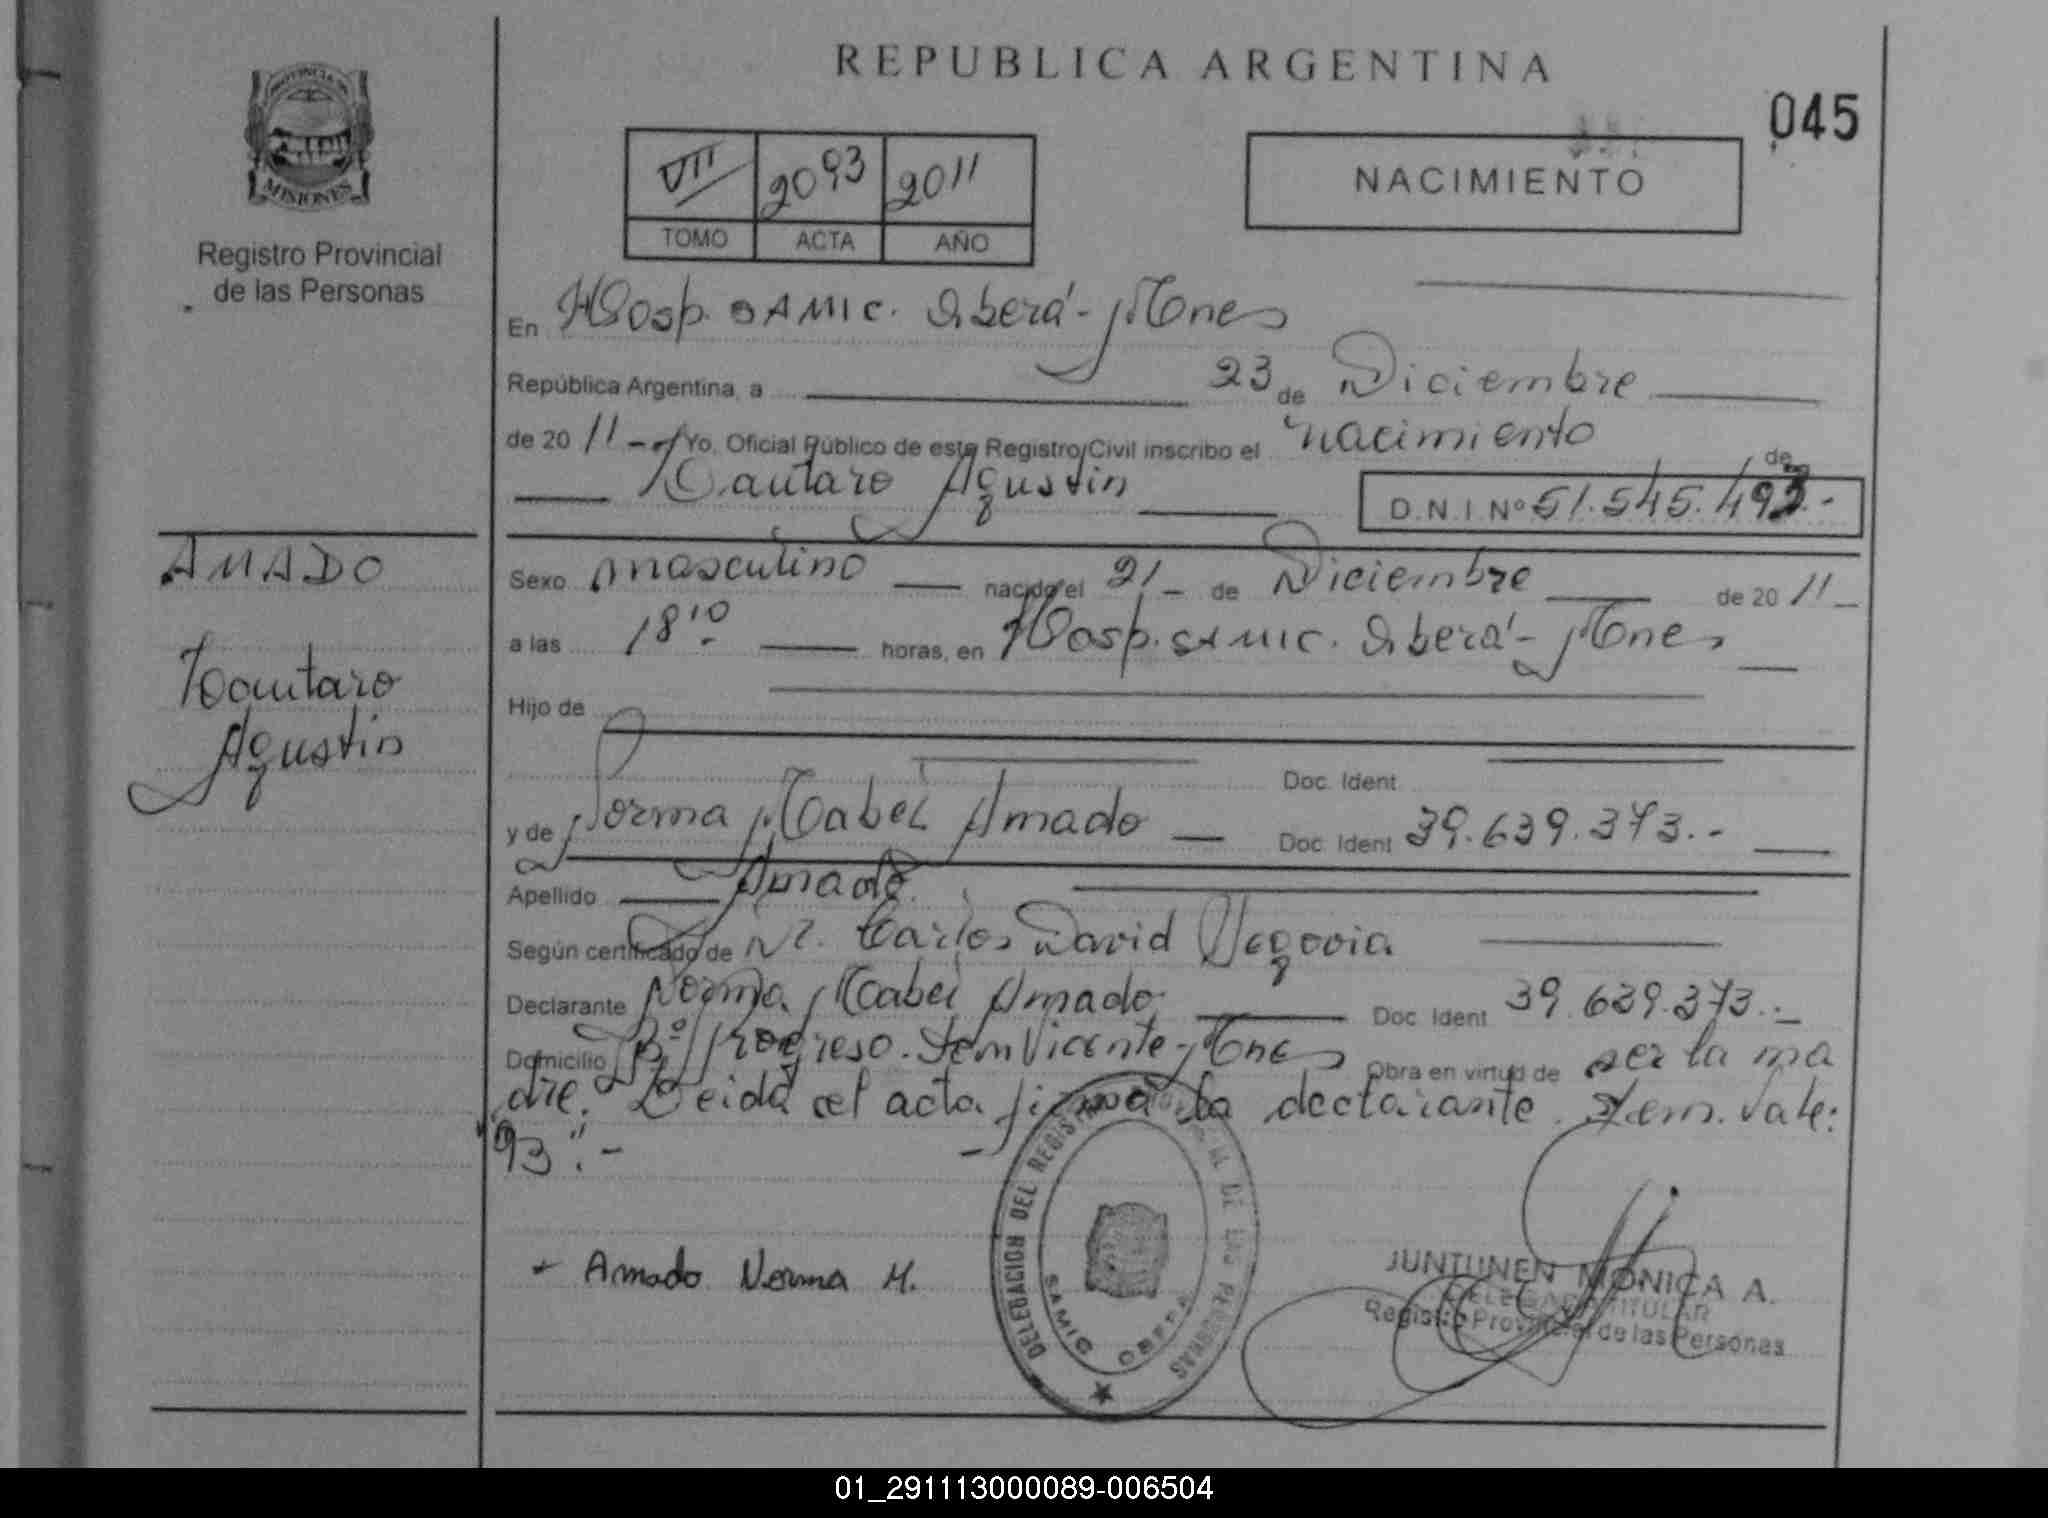 REPUBLICA ARGENTINA
045
PROVINCIA DE
MISIONES
Registro Provincial
de las Personas
VIII 2093 2011
TOMO ACTA AÑO
NACIMIENTO
En Hosp. SAMIC. Oberá - Mnes
República Argentina, a 23 de Diciembre
de 20 11 - Yo, Oficial Público de este Registro Civil inscribo el nacimiento de
Lautaro Agustin
D.N.I. Nº 51.545.493.-
AMADO
Lautaro
Agustin
Sexo masculino nacido el 21 - de Diciembre de 20 11 -
a las 18'10 - horas, en Hosp. SAMIC. Oberá - Mnes
Hijo de
Doc. Ident
y de Norma Mabel Amado Doc. Ident 39.639.373.-
Apellido Amado.
Según certificado de Carlos David Segovia
Declarante Norma Mabel Amado Doc. Ident 39.639.373.-
Domicilio Bº Progreso. San Vicente - Mnes Obra en virtud de ser la ma
dre. Leida el acta firma la declarante. Vale:
"93".-
Amado Norma M.
DELEGACION DEL REGISTRO PROVINCIAL DE LAS PERSONAS
SAMIC OBERA
JUNTUNEN MONICA A.
DELEGADA TITULAR
Registro Provincial de las Personas
01_291113000089-006504